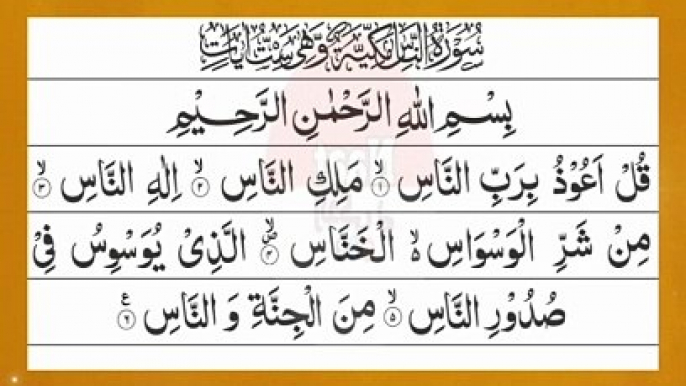 سُوْرَةُ النَّاسِ مَكِّيَّةٌ وَّهِيَ سِتُّ اٰيَاتٍ
بِسْمِ اللّٰهِ الرَّحْمٰنِ الرَّحِيْمِ
قُلْ اَعُوْذُ بِرَبِّ النَّاسِ ۙ‏﴿۱﴾ مَلِكِ النَّاسِ ۙ‏﴿۲﴾ اِلٰهِ النَّاسِ ۙ‏﴿۳﴾
مِنْ شَرِّ الْوَسْوَاسِ ۙ الْخَنَّاسِ ۙ‏﴿۴﴾ الَّذِىْ يُوَسْوِسُ فِىْ
صُدُوْرِ النَّاسِ ۙ‏﴿۵﴾ مِنَ الْجِنَّةِ وَ النَّاسِ ﴿۶﴾